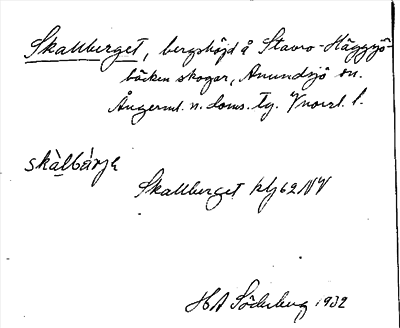 Skallberget, bergshöjd å Stavro-Häggsjö-
böcken skogar, Anundsjö sn.
Ångerml. n. doms. Tg. Vnorrl. l.
skàlbárje
Skallberget hlj 62 NV
HA Söderberg 1932